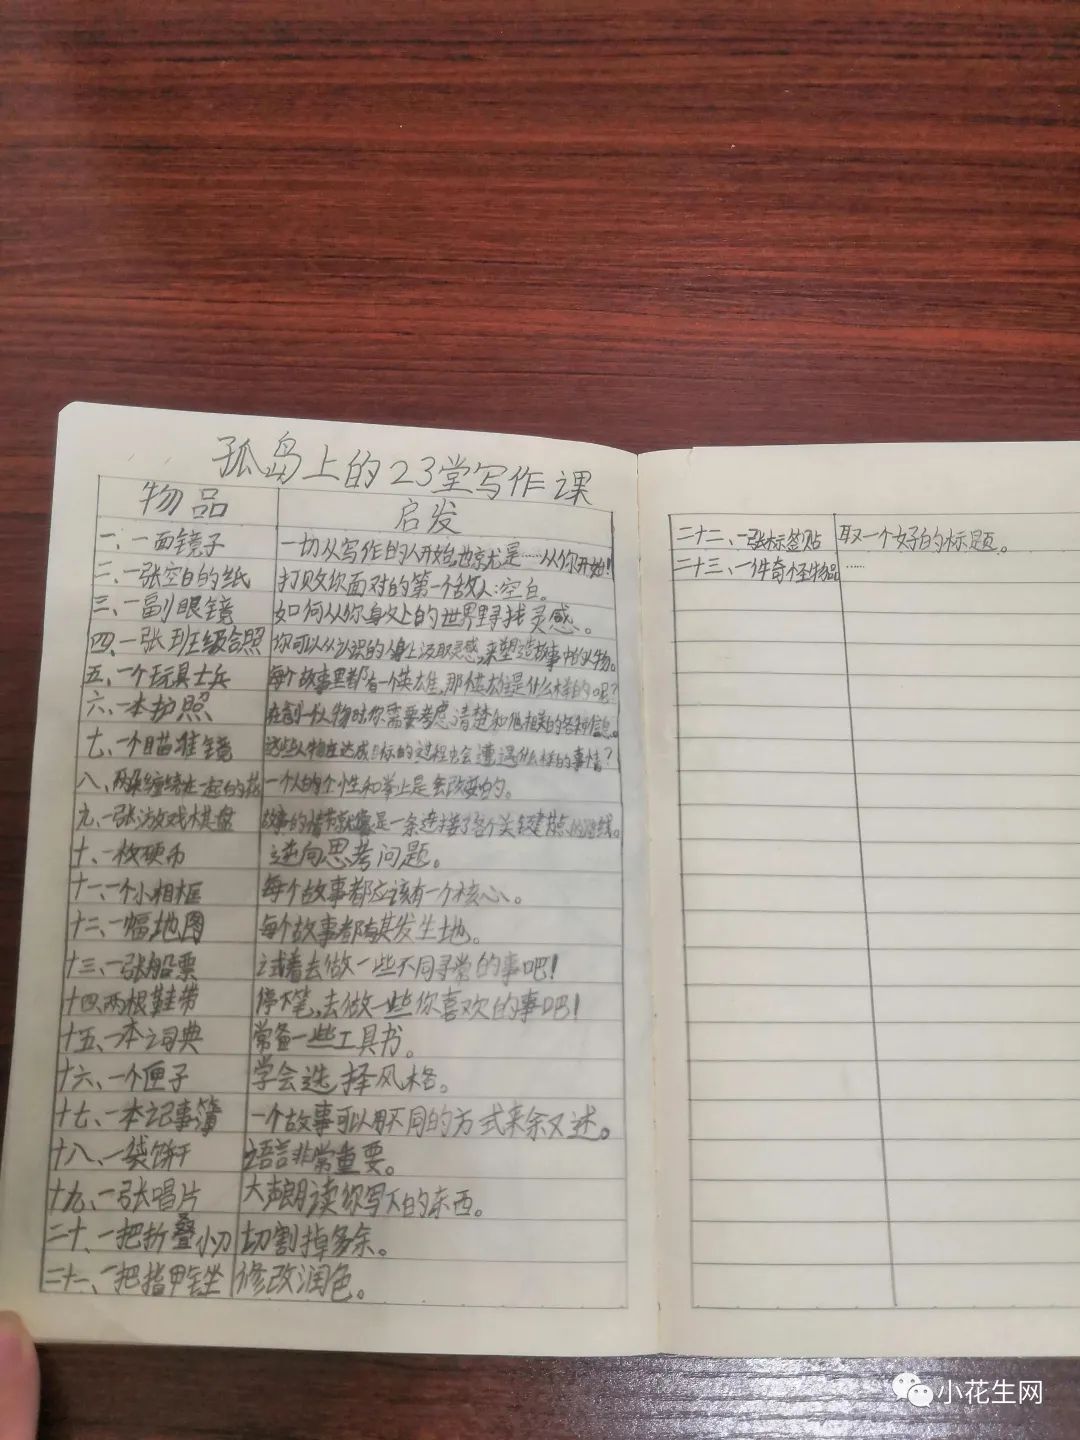 孤岛上的23堂写作课
物品 启发
一、一面镜子 一切从写作的人开始,也就是……从你开始!
二、一张空白的纸 打败你面对的第一个敌人:空白。
三、一副眼镜 如何从你身上的世界寻找灵感。
四、一张班级合照 你可以从认识的人身上汲取灵感,来塑造故事中的人物。
五、一个玩具士兵 每个故事里都有一个英雄,那个英雄是什么样的呢?
六、一本护照 在创一个人物时,你需要考虑清楚和他相关的各种信息。
七、一个瞄准镜 这些人物在达成目标的过程中会遭遇什么样的事情?
八、两朵缠绕在一起的花 一个人的个性和举止是会改变的。
九、一张游戏棋盘 故事的情节就像是一条连接了各个关键节点的路线。
十、一枚硬币 逆向思考问题。
十一、一个小相框 每个故事都应该有一个核心。
十二、一幅地图 每个故事都有其发生地。
十三、一张船票 试着去做一些不同寻常的事吧!
十四、两根鞋带 停下笔,去做一些你喜欢的事吧!
十五、一本词典 常备一些工具书。
十六、一个匣子 学会选择风格。
十七、一本记事簿 一个故事可以用不同的方式来叙述。
十八、一袋饼干 语言非常重要。
十九、一张唱片 大声朗读你写下的东西。
二十、一把折叠小刀 切割掉多余。
二十一、一把指甲锉 修改润色。
二十二、一张标签贴 取一个好的标题。
二十三、一件奇怪物品 ……
小花生网